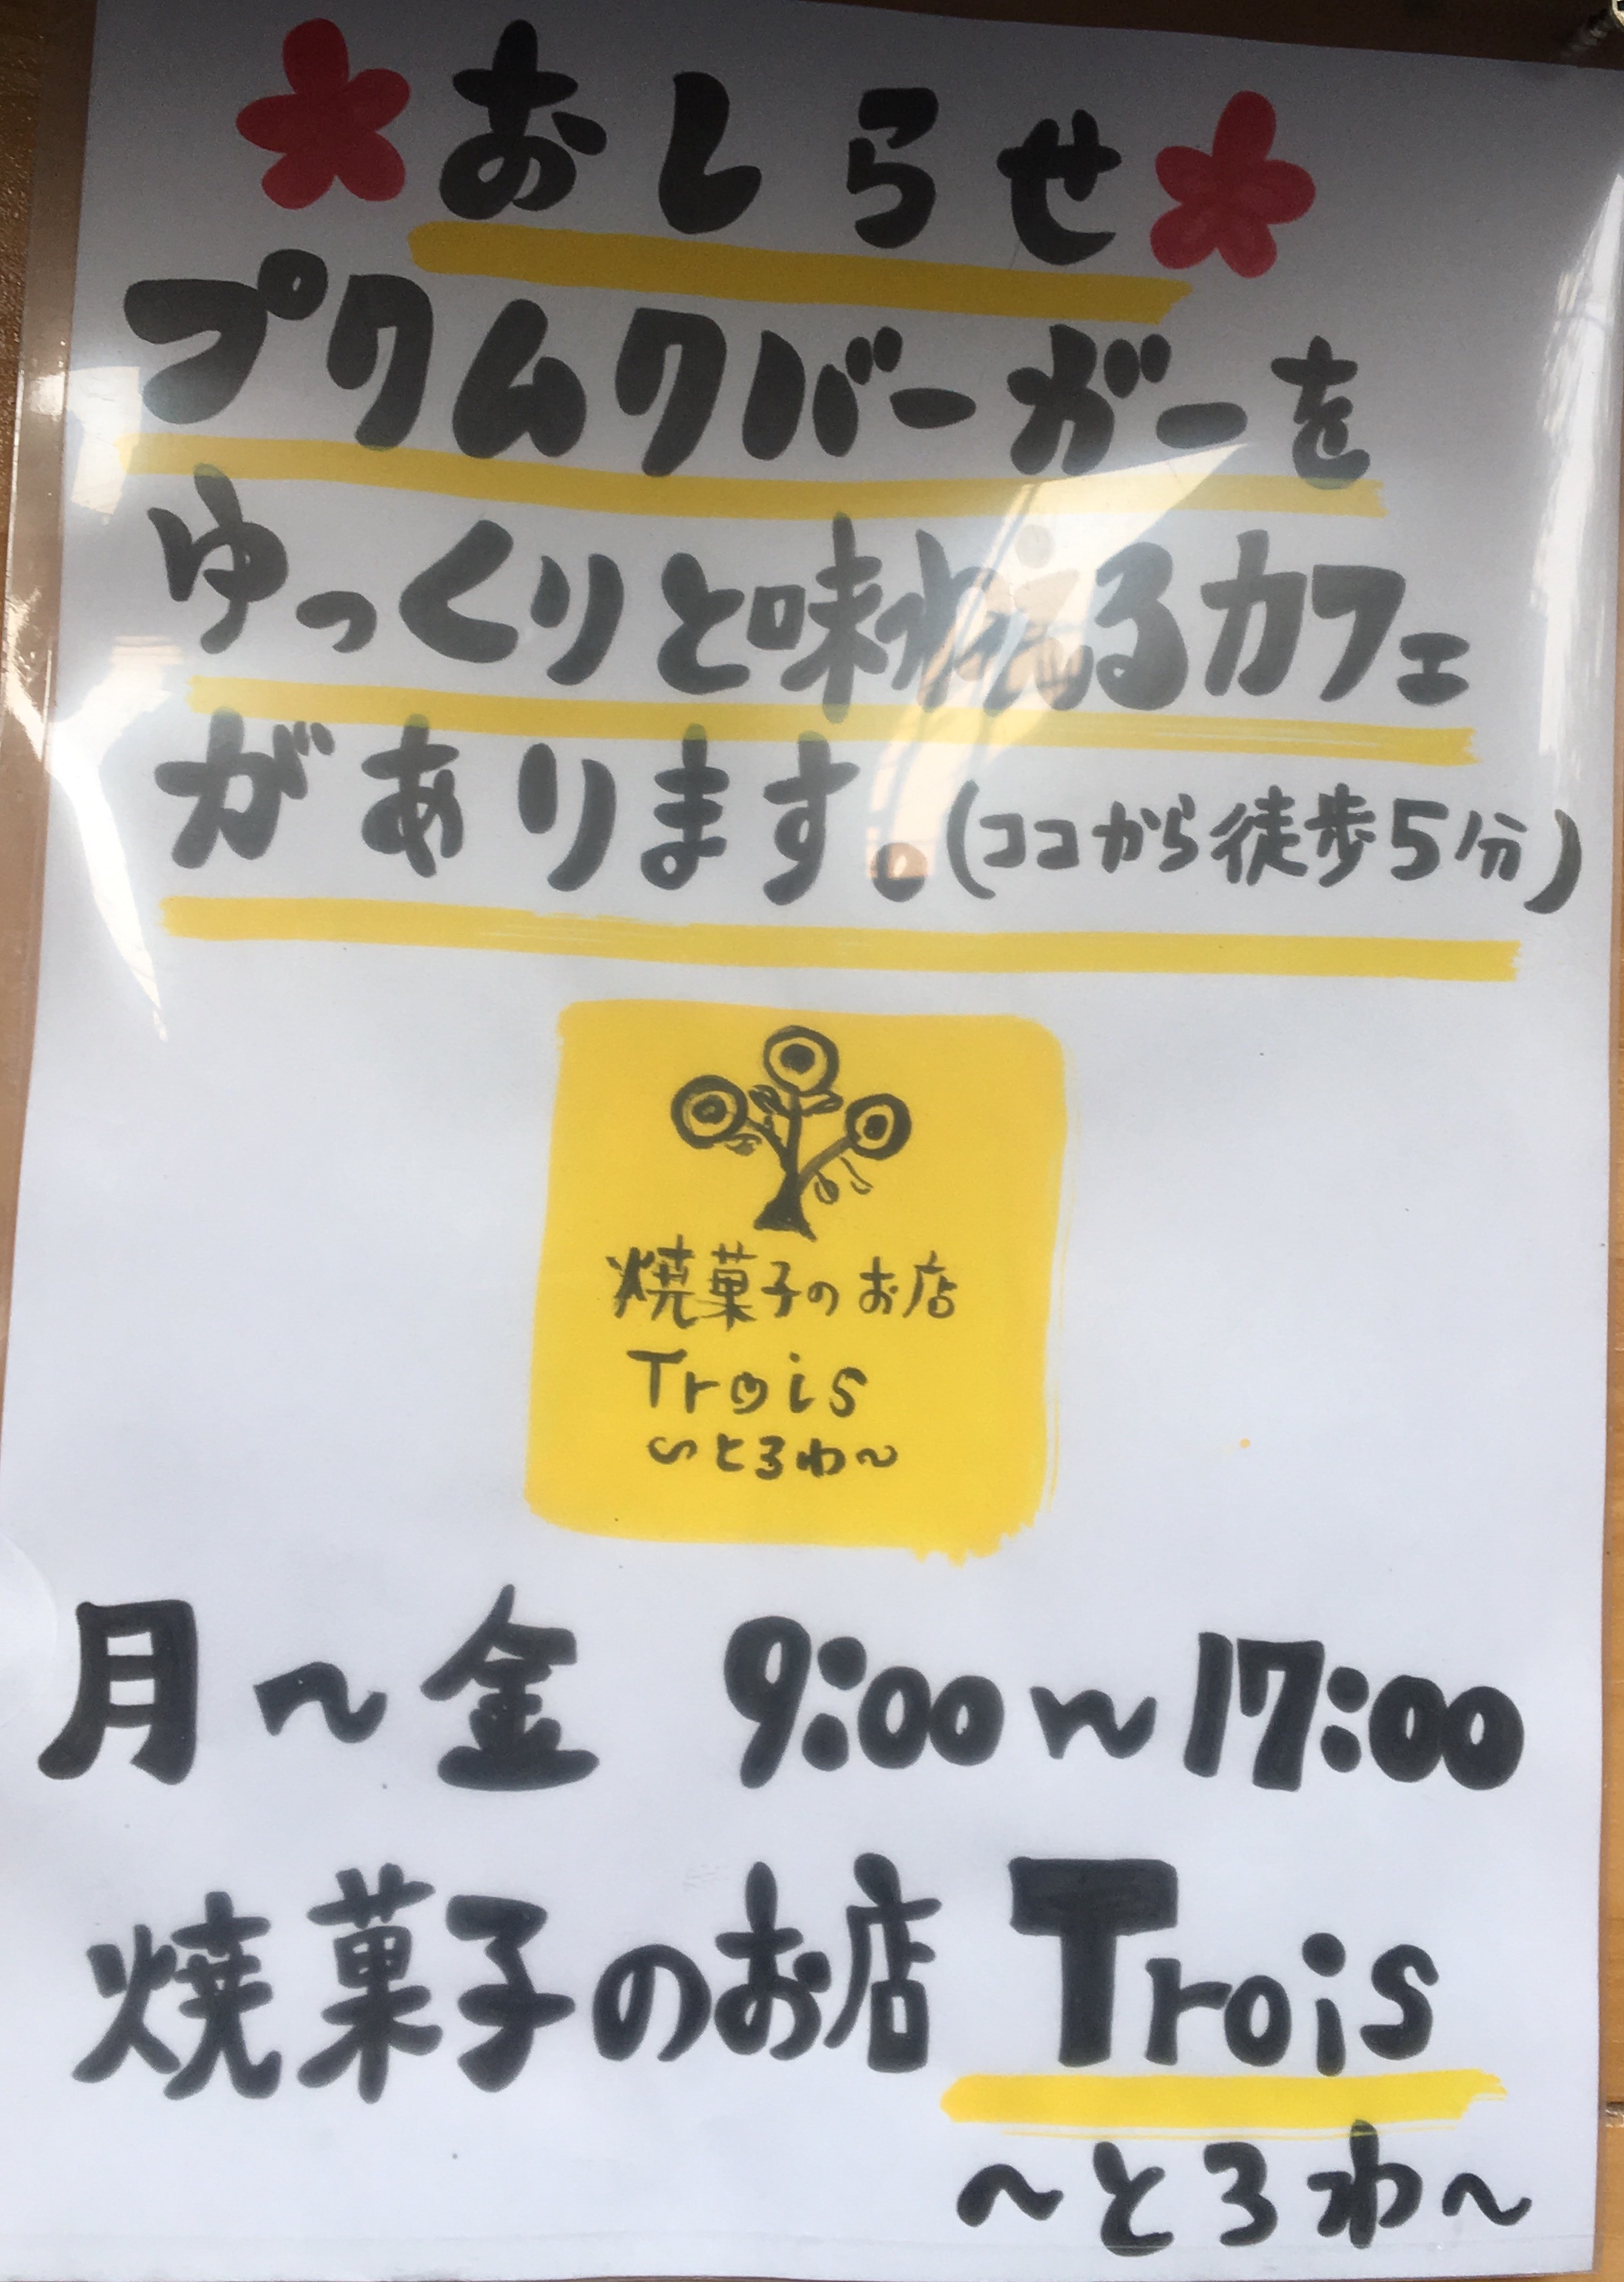 おしらせ
プクムクバーガーを
ゆっくりと味わえるカフェ
があります。(ココから徒歩5分)
焼菓子のお店
Trois
〜とろわ〜
月〜金 9:00〜17:00
焼菓子のお店 Trois
〜とろわ〜